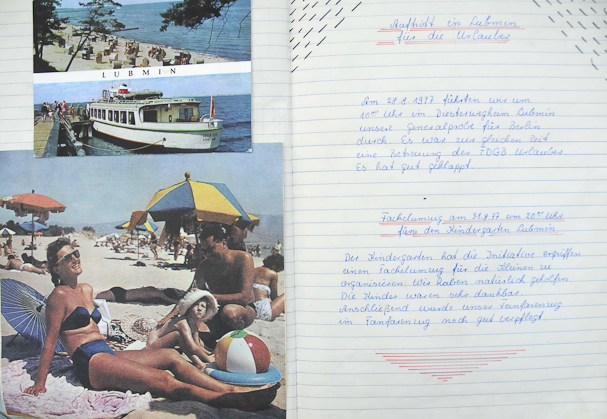 LUBMIN
Auftritt in Lubmin
für die Urlauber
Am 28.8.1977 führten wir um
10⁰⁰ Uhr im Diesterwegheim Lubmin
unsere Generalprobe für Berlin
durch. Es war zur gleichen Zeit
eine Betreuung der FDGB Urlauber.
Es hat gut geklappt.
Fackelumzug am 31.8.77 um 20⁰⁰ Uhr
für den Kindergarten Lubmin
Der Kindergarten hat die Initiative ergriffen
einen Fackelumzug für die Kleinen zu
organisieren. Wir haben natürlich geholfen.
Die Kinder waren sehr dankbar.
Anschließend wurde unser Fanfarenzug
im Fanfarenzug noch gut verpflegt.